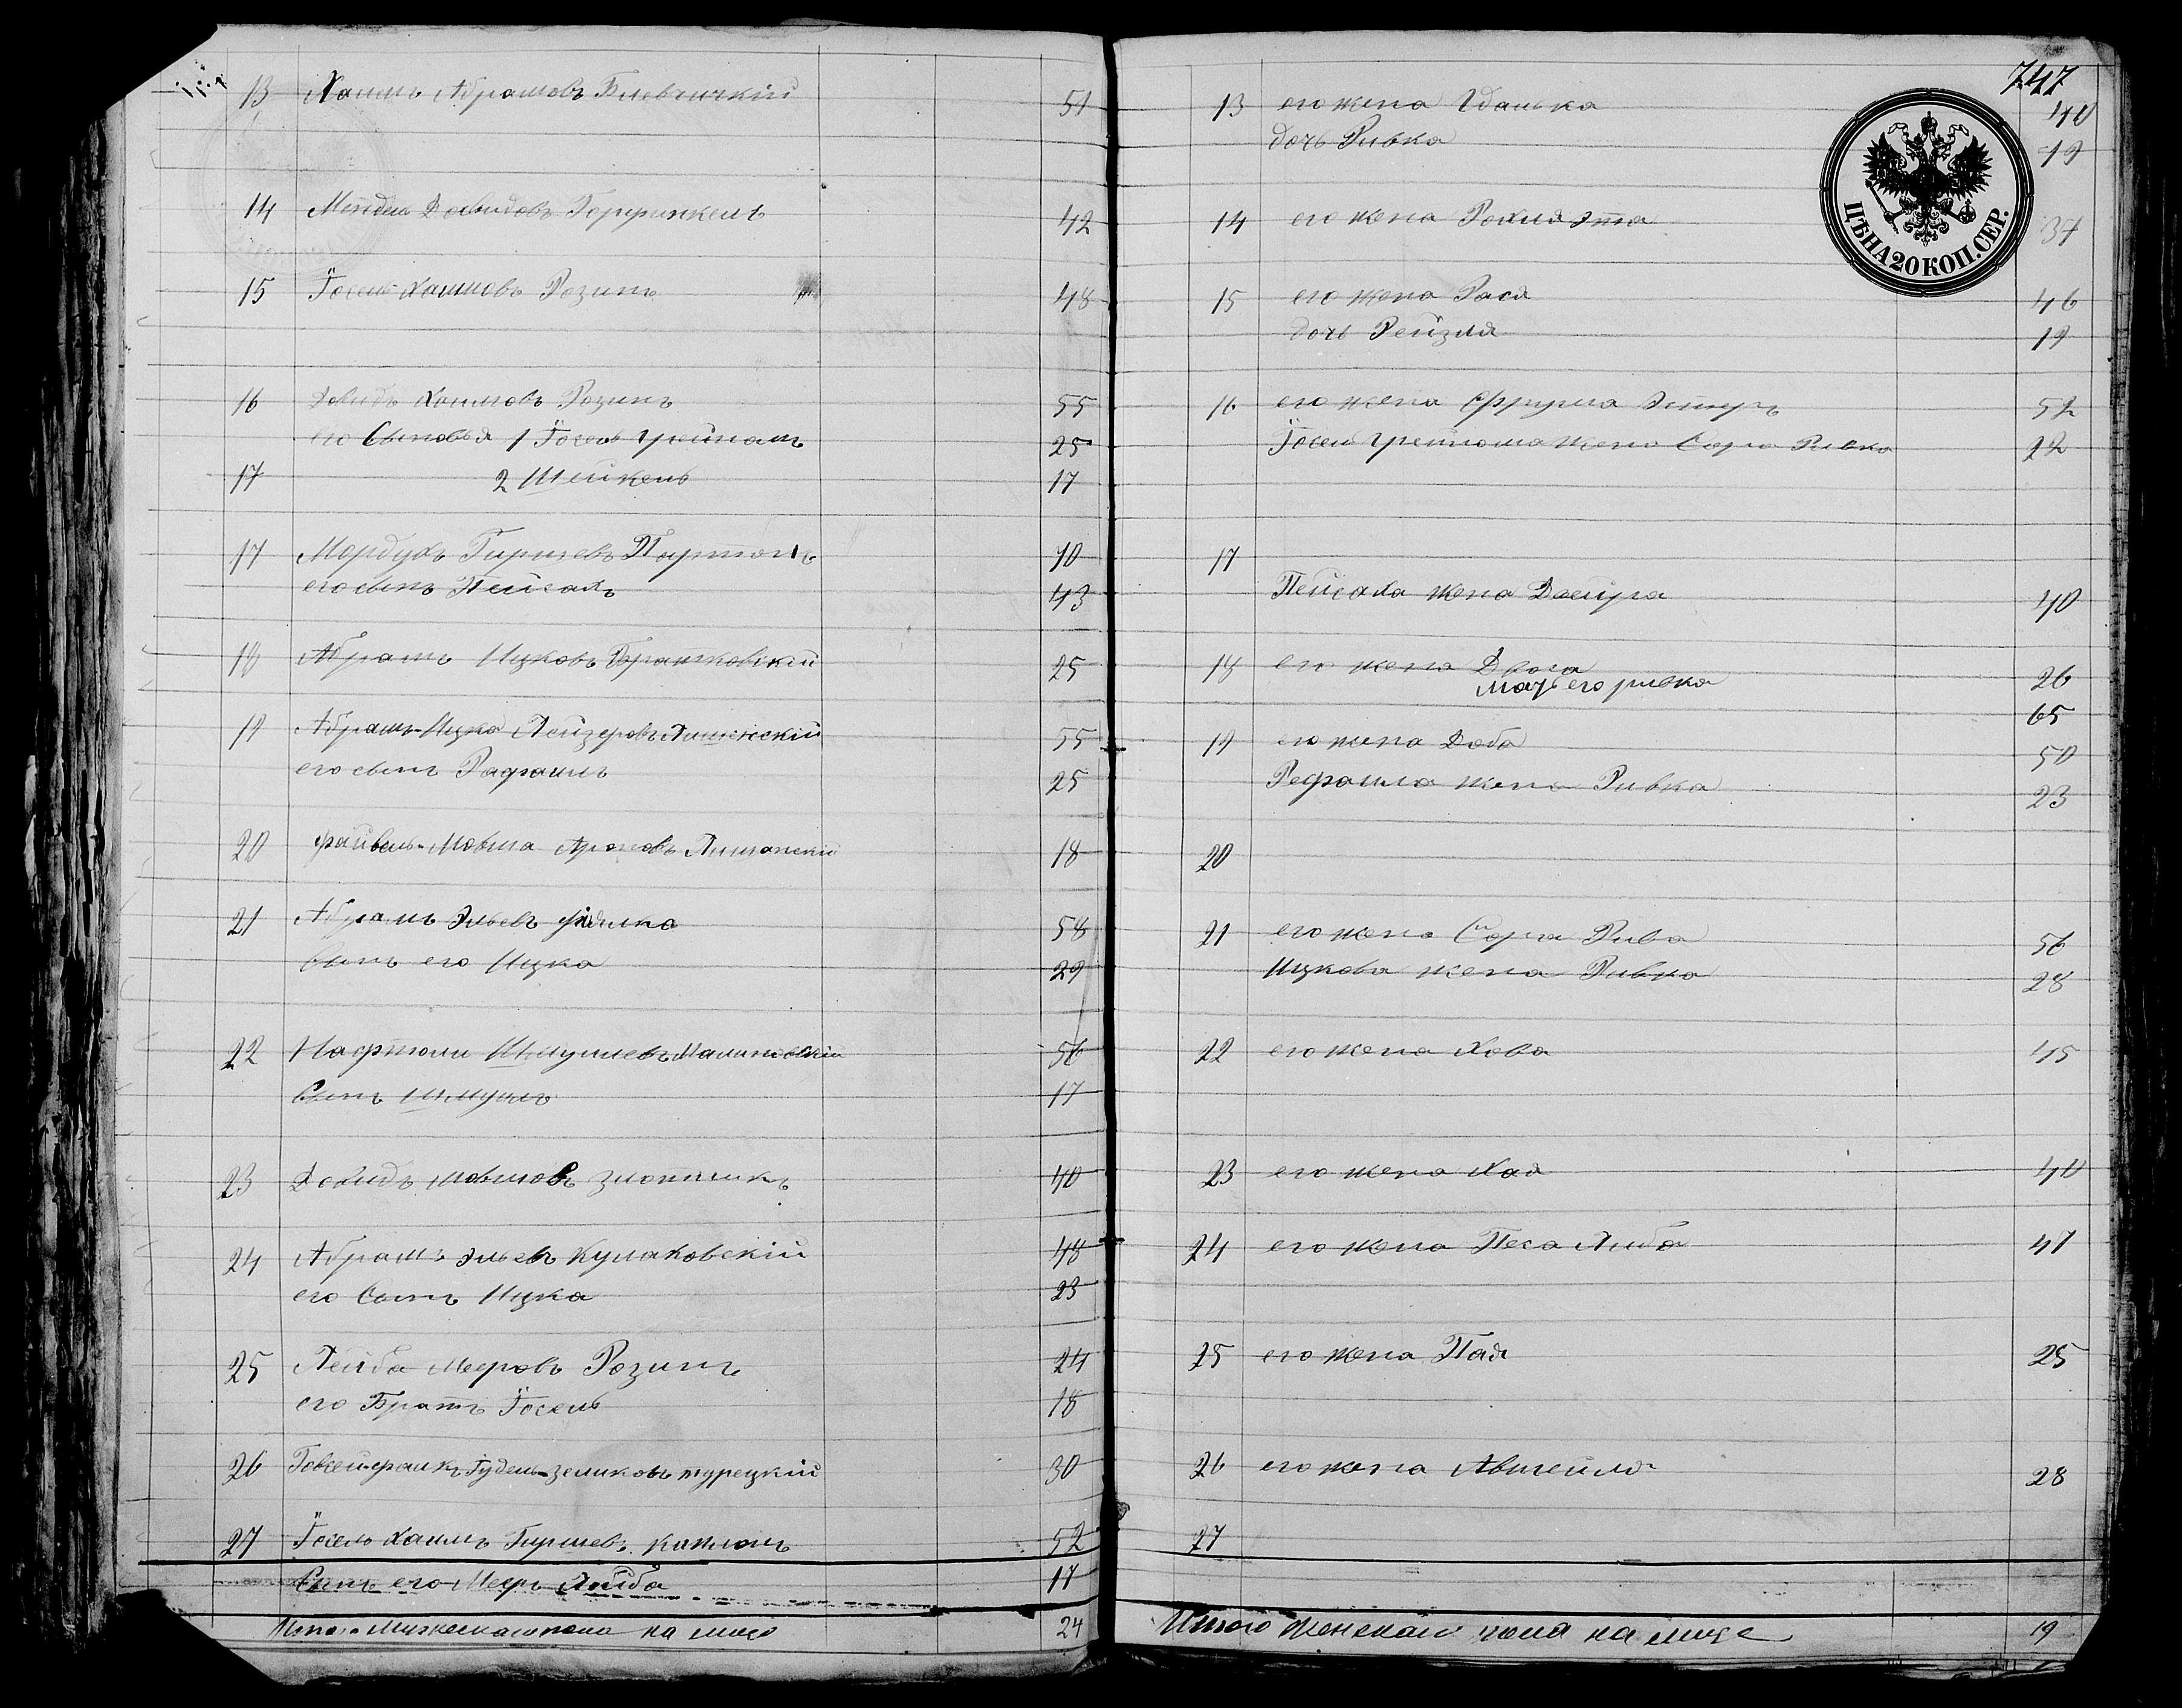 13 Хаимъ Абрамовъ 51
14 Мендель Довидовъ Горфинкель 42
15 Іосель Хаимовъ Розинъ 48
16 Довидъ Хаимовъ Розинъ 55
его Сыновья 1 Іосель 25
17 2 17
17 Мордухъ Гиршевъ 70
его сынъ Пейсахъ 43
18 Абрамъ Ицковъ 25
19 Абрамъ-Ицка Лейзеровъ 55
его сынъ Рафаилъ 25
20 файвель-Мовша Ароновъ 18
21 Абрамъ Эльевъ 58
Сынъ его Ицка 29
22 Нафтоли Шмулевъ Малиновскій 56
Сынъ Шмуилъ 17
23 Довидъ Мовшовъ 40
24 Абрамъ Эльевъ Кулаковскій 48
его Сынъ Ицка 23
25 Лейба Мееровъ Розинъ 24
его Братъ Іосель 18
26 турецкій 30
27 Іосель Хаимъ Гиршевъ 52
Сынъ его Меер Лейба 17
Итого Мужескаго пола на лицо 24
747
ЦѢНА 20 КОП. СЕР.
13 его жена 40
дочь Ривка 19
14 его жена Рохля Эта 37
15 его жена Рася 46
дочь Рейзля 19
16 его жена Фрума Эстеръ 52
Іосель жена Сора Ривка 22
17
Пейсаха жена Двейра 40
18 его жена 26
Мать его ривка 65
19 его жена Доба 50
Рефаила жена Ривка 23
20
21 его жена Сора Рива 56
Ицкова жена Ривка 28
22 его жена Хова 45
23 его жена Хая 40
24 его жена Песа Либа 47
25 его жена Пая 25
26 его жена 28
27
Итого Женскаго пола на лице 19